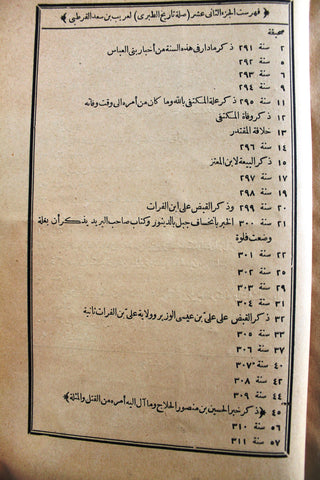 ﴿ فهرست الجزء الثانى عشر (صلة تاريخ الطبرى) لعريب بن سعد القرطبى ﴾
صحيفة
٢ سنة ٢٩١ ذكر مادار فى هذه السنة من أخبار بنى العباس
٥ سنة ٢٩٢
٦ سنة ٢٩٣
٩ سنة ٢٩٤
١١ سنة ٢٩٥ ذكر علة المكتفى بالله وما كان من أمره الى وقت وفاته
١٢ ذكر وفاة المكتفى
١٣ خلافة المقتدر
١٤ سنة ٢٩٦
١٥ ذكر البيعة لابن المعتز
١٧ سنة ٢٩٧
١٩ سنة ٢٩٨
٢٠ سنة ٢٩٩ وذكر القبض على ابن الفرات
٢١ سنة ٣٠٠ الخبر بانخساف جبل بالدينور وكتاب صاحب البريد يذكر أن بغلة
وضعت فلوة
٢٢ سنة ٣٠١
٢٥ سنة ٣٠٢
٢٨ سنة ٣٠٣
٣١ سنة ٣٠٤
٣٢ ذكر القبض على على بن عيسى الوزير وولاية على بن الفرات ثانية
٣٣ سنة ٣٠٥
٣٧ سنة ٣٠٦
٤٠ سنة ٣٠٧
٤٢ سنة ٣٠٨
٤٤ سنة ٣٠٩
٤٥ ﴿ ذكر خبر الحسين بن منصور الحلاج وما آل اليه أمره من القتل والمثلة ﴾
٥٦ سنة ٣١٠
٥٧ سنة ٣١١